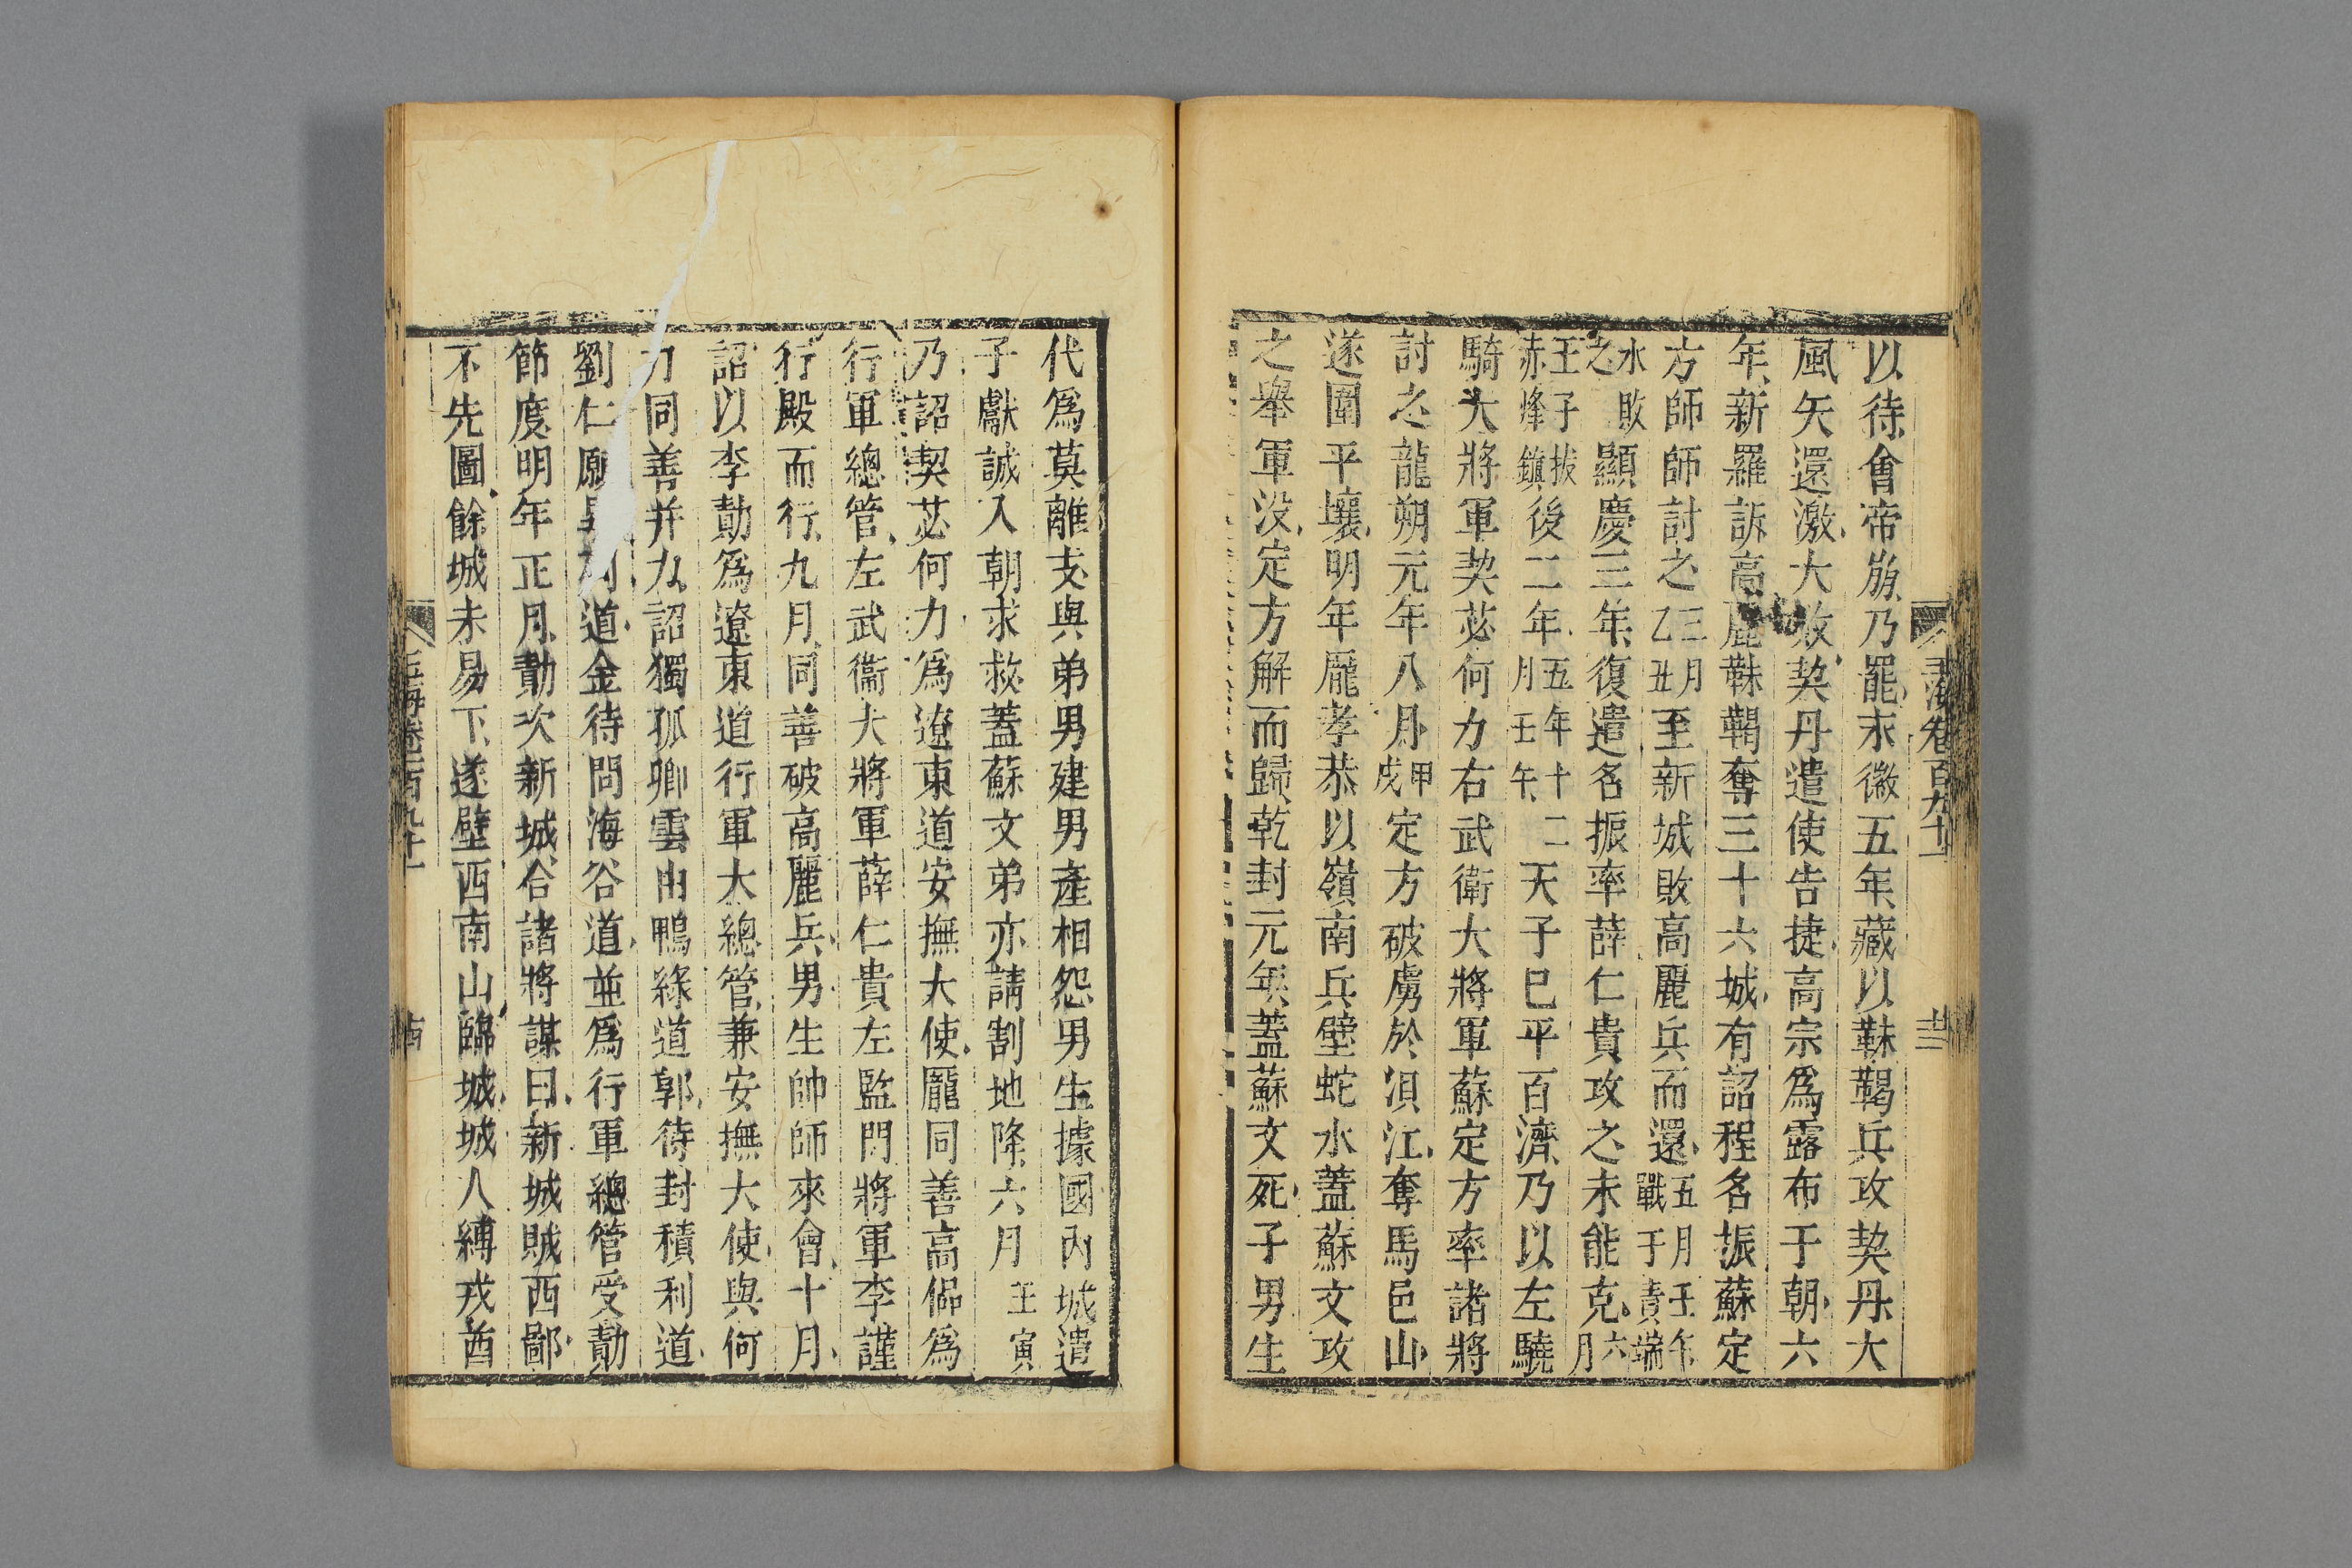 以待會帝崩乃罷永徽五年藏以靺鞨兵攻契丹大
風矢還激大敗契丹遣使告捷高宗爲露布于朝六
年新羅訴高麗靺鞨奪三十六城有詔程名振蘇定
方師師討之三月乙丑至新城敗高麗兵而還五月壬午戰于責端
水敗之顯慶三年復遣名振率薛仁貴攻之未能克六月
王子子拔赤烽鎮後二年五年十二月壬午天子已平百濟乃以左驍
騎大將軍契苾何力右武衛大將軍蘇定方率諸將
討之龍朔元年八月甲戌定方破虜於浿江奪馬邑山
遂圍平壤明年龐孝恭以嶺南兵壁蛇水蓋蘇文攻
之舉軍没定方解而歸乾封元年蓋蘇文死子男生
代爲莫離支與弟男建男產相怨男生據國內城遣
子獻誠入朝求救蓋蘇文弟亦請割地降六月壬寅
乃詔契苾何力爲遼東道安撫大使龐同善高偘爲
行軍總管左武衞大將軍薛仁貴左監門將軍李謹
行殿而行九月同善破高麗兵男生帥師來會十月
詔以李勣爲遼東道行軍大總管兼安撫大使與何
力同善并力詔獨孤卿雲由鴨綠道郭待封積利道
劉仁願道金待問海谷道並爲行軍總管受勣
節度明年正月勣次新城合諸將謀曰新城賊西鄙
不先圖餘城未易下遂壁西南山臨城城人縛戎酋